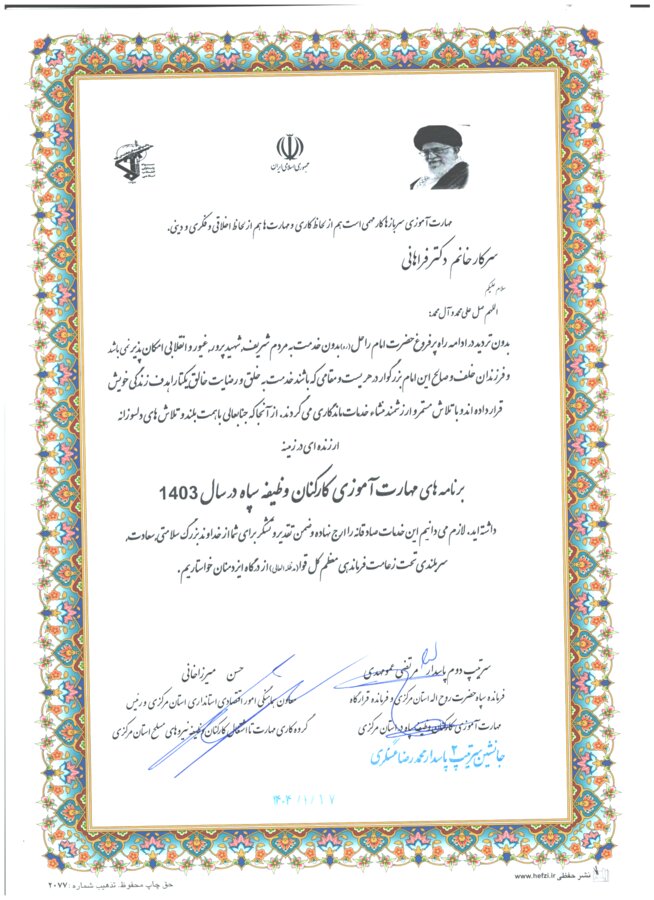 جمهوری اسلامی ایران
مهارت آموزی سربازها کار مهمی است هم از لحاظ کاری و مهارت ها هم از لحاظ اخلاقی و فکری و دینی.
سرکار خانم دکتر فراهانی
سلام علیکم
اللهم صل علی محمد و آل محمد:
بدون تردید در ادامه راه پر فروغ حضرت امام راحل (ره) بدون خدمت به مردم شریف، شهید پرور، غیور و انقلابی امکان پذیر نمی باشد
و فرزندان خلف و صالح این امام بزرگوار در هر پست و مقامی که باشند خدمت به خلق و رضایت خالق یکتا را هدف زندگی خویش
قرار داده اند و با تلاش مستمر و ارزشمند منشاء خدمات ماندگاری می گردند. از آنجا که جنابعالی با همت بلند و تلاش های دلسوزانه
ارزنده ای در زمینه
برنامه های مهارت آموزی کارکنان وظیفه سپاه در سال 1403
داشته اید. لازم می دانیم این خدمات صادقانه را ارج نهاده و ضمن تقدیر و تشکر برای شما از خداوند بزرگ سلامتی, سعادت,
سربلندی تحت زعامت فرماندهی معظم کل قوا (مدظله العالی) از درگاه ایزد منان خواستاریم.
سرتیپ دوم پاسدار مرتضی عمومهدی
فرمانده سپاه حضرت روح اله استان مرکزی و فرمانده قرارگاه
مهارت آموزی کارکنان وظیفه سپاه در استان مرکزی
جانشین سرتیپ ۲ پاسدار محمدرضا عسگری
حسن میرزاخانی
معاون هماهنگی امور اقتصادی استانداری استان مرکزی و رئیس
گروه کاری مهارت تا اشتغال کارکنان وظیفه نیروهای مسلح استان مرکزی
۱۴۰۴/۱/۱۷
نشر حفظی www.hefzi.ir
حق چاپ محفوظ. تذهیب شماره: ۲۰۷۷